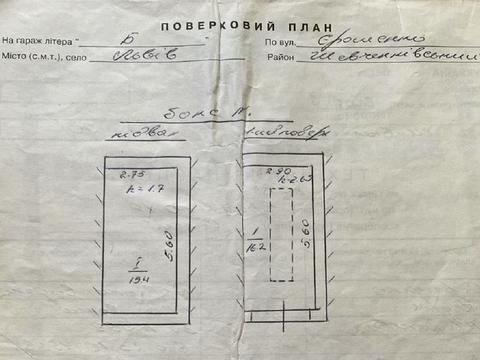 ПОВЕРХОВИЙ ПЛАН
На гараж літера " Б " По вул. Єрошенко
Місто (с.м.т.), село Львів Район Шевченківський
бокс N.
підвал
2.75 2.90
h=1.7 h=2.63
5.60 5.60
I/15.4 1/16.2